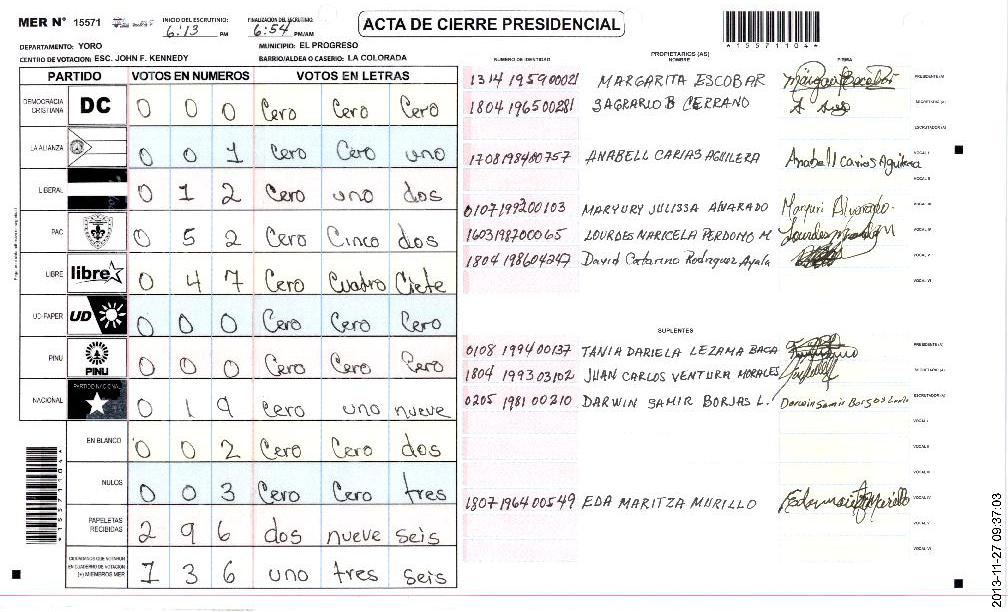 MER N° 15571 INICIO DEL ESCRUTINIO: 6:13 PM FINALIZACION DEL ESCRUTINIO: 6:54 PM/AM ACTA DE CIERRE PRESIDENCIAL
*15571104*
DEPARTAMENTO: YORO MUNICIPIO: EL PROGRESO
CENTRO DE VOTACION: ESC. JOHN F. KENNEDY BARRIO/ALDEA O CASERIO: LA COLORADA
PARTIDO VOTOS EN NUMEROS VOTOS EN LETRAS
DEMOCRACIA CRISTIANA DC 0 0 0 Cero Cero Cero
LA ALIANZA 0 0 1 Cero Cero uno
LIBERAL 0 1 2 Cero uno dos
PAC 0 5 2 Cero Cinco dos
LIBRE libre 0 4 7 Cero Cuatro Ciete
UD-FAPER UD 0 0 0 Cero Cero Cero
PINU PINU 0 0 0 Cero Cero Cero
NACIONAL PARTIDO NACIONAL 0 1 9 Cero uno nueve
EN BLANCO 0 0 2 Cero Cero dos
NULOS 0 0 3 Cero Cero tres
PAPELETAS RECIBIDAS 2 9 6 dos nueve seis
CIUDADANOS QUE VOTARON EN CUADERNO DE VOTACION (+) MIEMBROS MER 1 3 6 uno tres seis
*15571104*
PROPIETARIOS (AS)
NUMERO DE IDENTIDAD NOMBRE FIRMA
1314 1959 00021 MARGARITA ESCOBAR Margarita Escobar PRESIDENTE(A)
1804 1965 00281 SAGRARIO B CERRANO SECRETARIO (A)
ESCRUTADOR (A)
1708198480757 ANABELL CARIAS AGUILERA Anabell Carias Aguilera VOCAL I
VOCAL II
0107199200103 MARYURY JULISSA ALVARADO Maryuri Alvarado VOCAL III
1603198700065 LOURDES MARICELA PERDOMO M VOCAL IV
1804 198604247 David Catarino Rodriguez Ayala VOCAL V
VOCAL VI
SUPLENTES
0108 1994 00137 TANIA DARIELA LEZAMA BACA PRESIDENTE(A)
1804 1993 03102 JUAN CARLOS VENTURA MORALES SECRETARIO (A)
0205 1981 00210 DARWIN SAMIR BORJAS L. Darwin Samir Borjas ESCRUTADOR(A)
VOCAL I
VOCAL II
VOCAL III
1807 1964 00549 EDA MARITZA MURILLO VOCAL IV
VOCAL V
VOCAL VI
2013-11-27 09:37:03